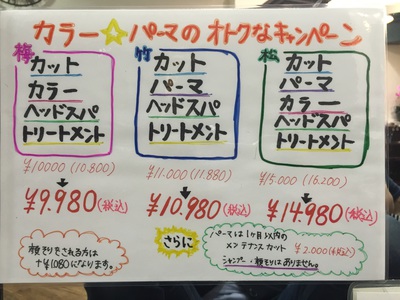 カラー☆パーマのオトクなキャンペーン
梅
カット
カラー
ヘッドスパ
トリートメント
¥10000 (10.800)
¥9.980(税込)
竹
カット
パーマ
ヘッドスパ
トリートメント
¥11.000 (11.880)
¥10.980(税込)
松
カット
パーマ
カラー
ヘッドスパ
トリートメント
¥15.000 (16.200)
¥14.980(税込)
顔そりをされる方は
+¥1080になります。
さらに
パーマは1ヶ月以内の
メンテナンスカット ¥2.000(税込)
シャンプー・顔そりはありません。